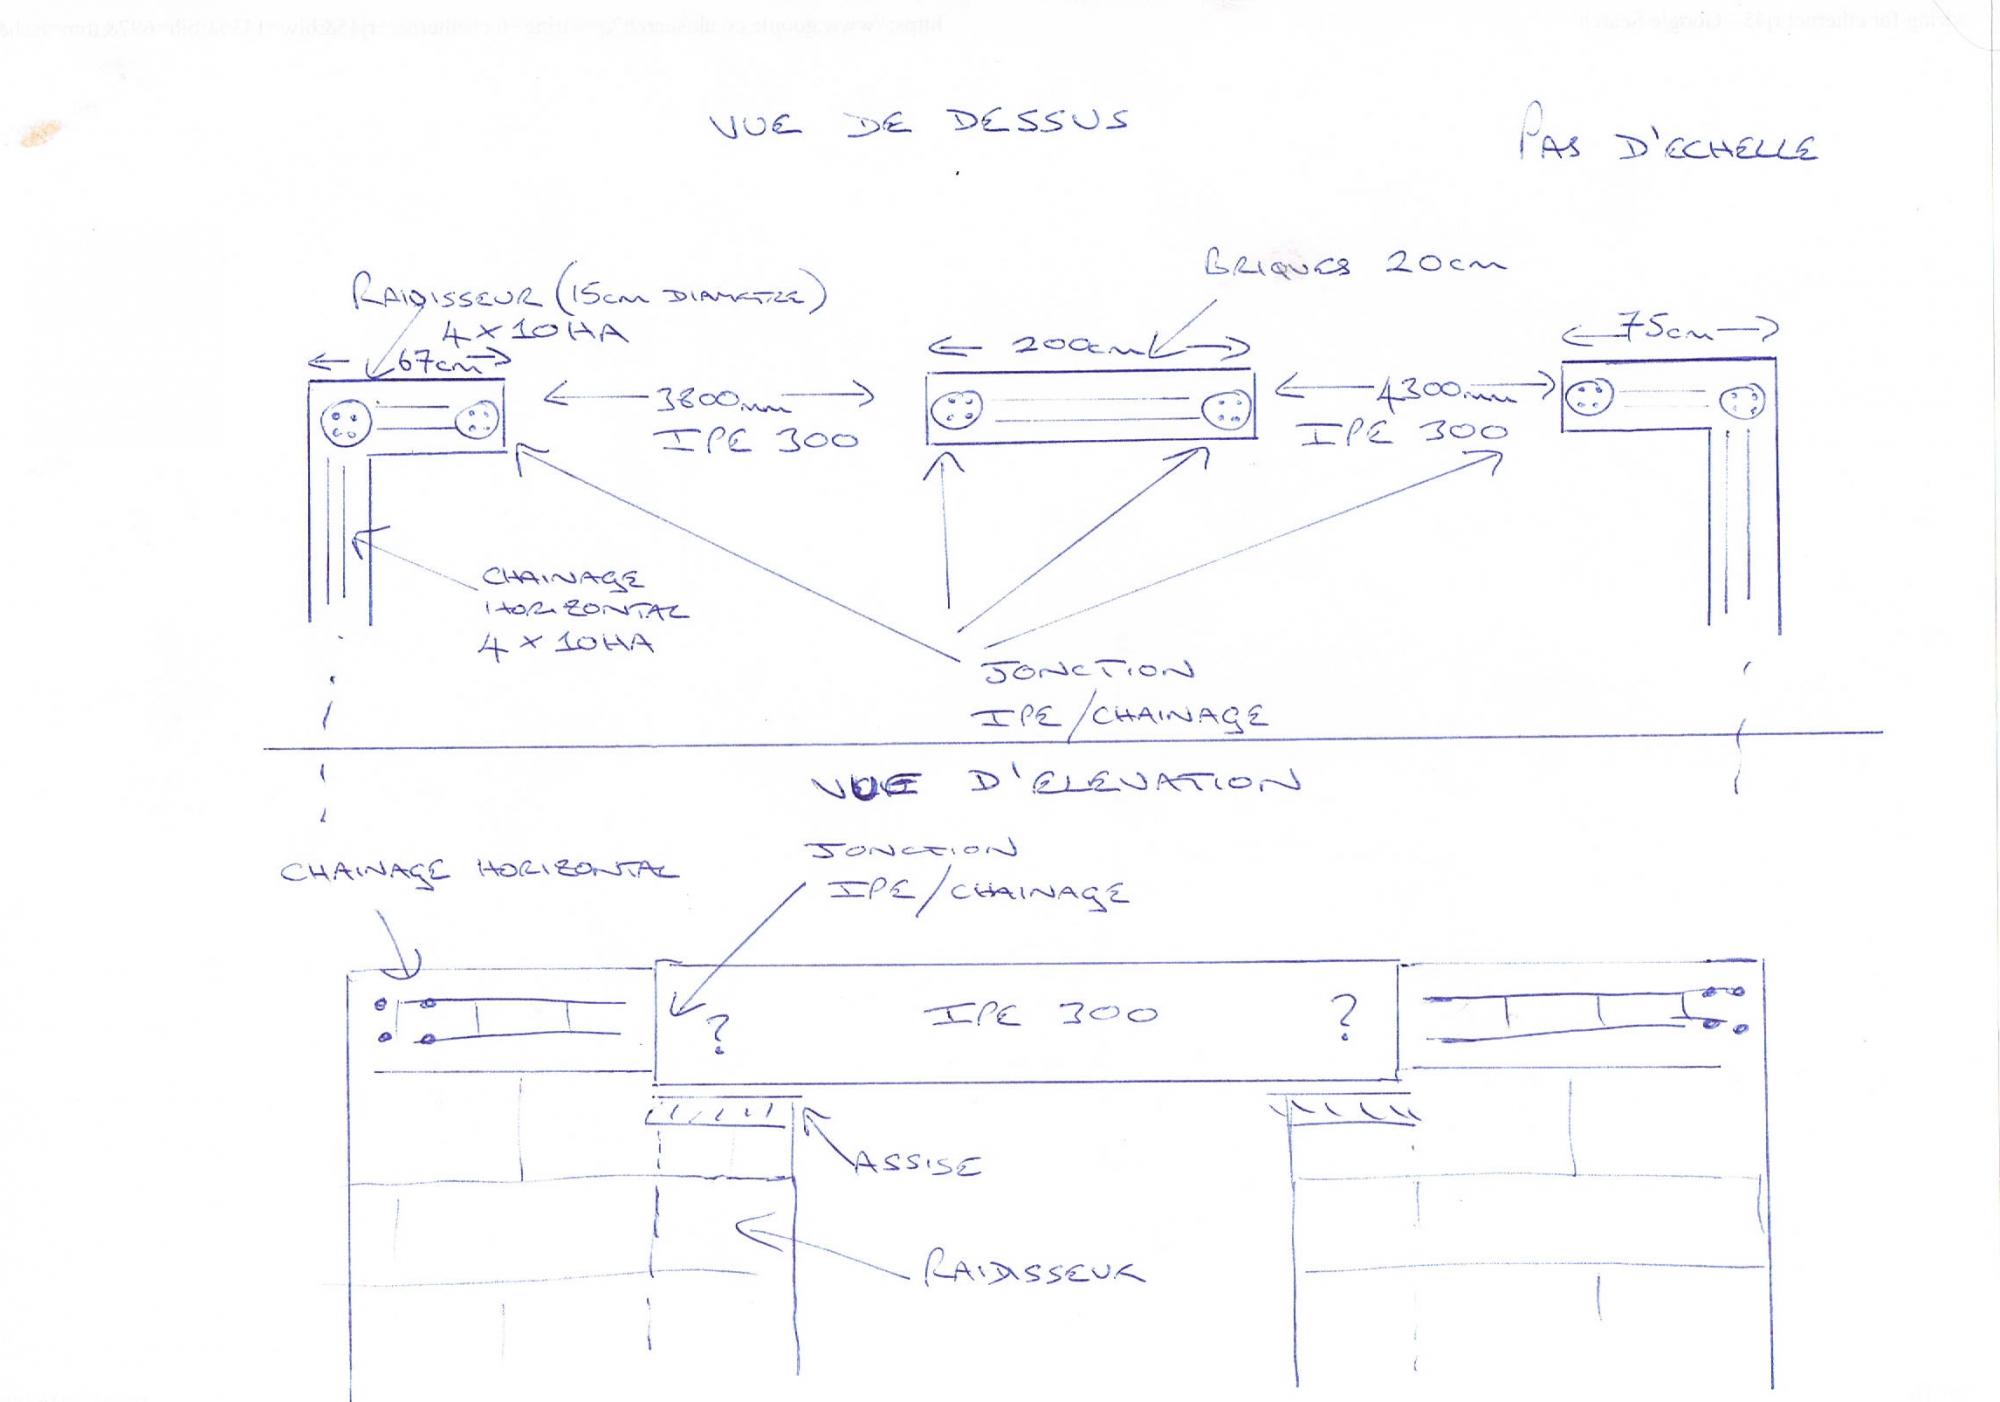 VUE DE DESSUS
PAS D'ECHELLE
RAIDISSEUR (15cm DIAMETRE)
4 x 10HA
67cm
3800mm
IPE 300
200cm
BRIQUES 20cm
4300mm
IPE 300
75cm
CHAINAGE
HORIZONTAL
4 x 10HA
JONCTION
IPE/CHAINAGE
VUE D'ELEVATION
CHAINAGE HORIZONTAL
JONCTION
IPE/CHAINAGE
? IPE 300 ?
ASSISE
RAIDISSEUR